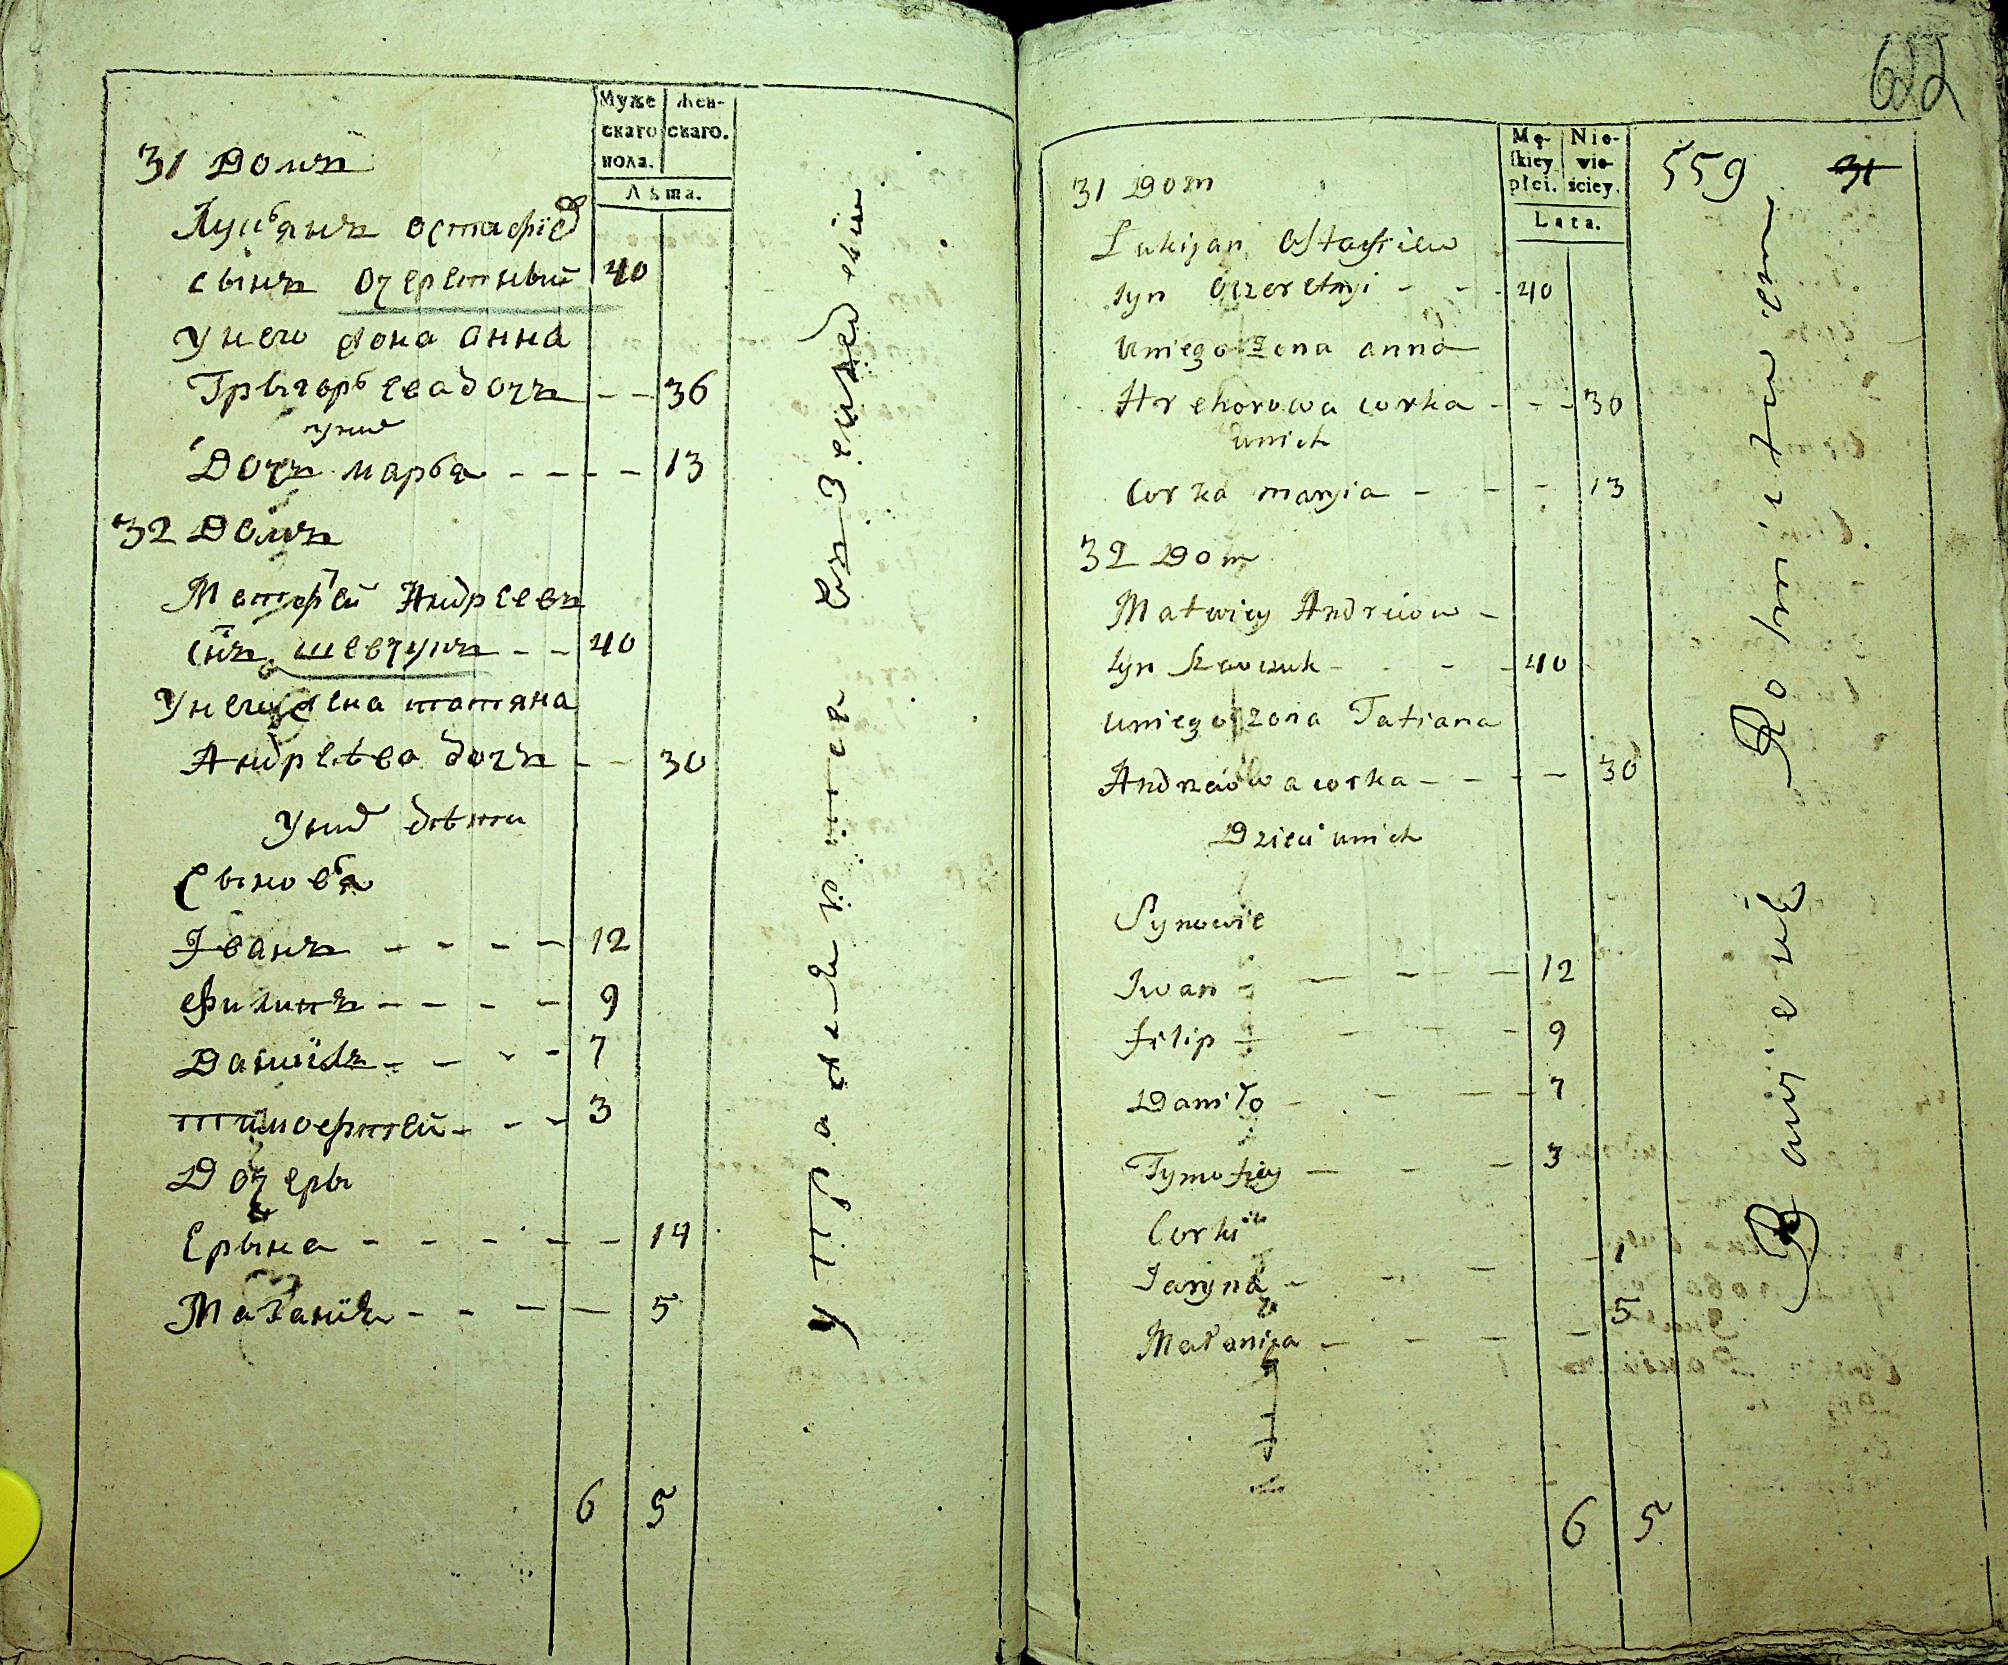 Муже
скаго
пола.
Жен-
скаго.
Лѣта.
31 Домъ
Лукьянъ Остафіев
сынъ Очеретный 40
У него жона Анна
Грыгорьева дочъ - - 36
у них
Дочъ Марья - - - - 13
32 Домъ
Матфей Андреевъ
снъ Шевчукъ - - 40
У него жена Татяна
Андрѣева дочъ - - 30
У них дѣти
Сыновья
Іванъ - - - - 12
Филипъ - - - - 9
Данійлъ - - - - 7
Тимофтей - - - 3
Дочеры
Ерына - - - - - - 14
Маланія - - - - 5
6 5
упражняется въ земледеліи
622
Mę-
skiey
płci.
Nie-
wie-
ściey.
Lata.
559 31
31 Dom
Lukijan Ostafiew
syn Oczeretnyi - - - 40
u niego Żona anna
Hrehorowa corka - - - 30
u nich
Corka maryia - - - 13
32 Dom
Matwiey Andreiow -
syn Szewczuk - - - - 40
u niego zona Tatiana
Andrzeiowa corka - - - - 30
Dzieci u nich
Synowie
Iwan - - - - - 12
filip - - - 9
Daniło - - - - 7
Tymofiey - - - 3
Corki
Jaryna - - - -
Małanija - - - - 5
6 5
Bawi się Rolnictwem